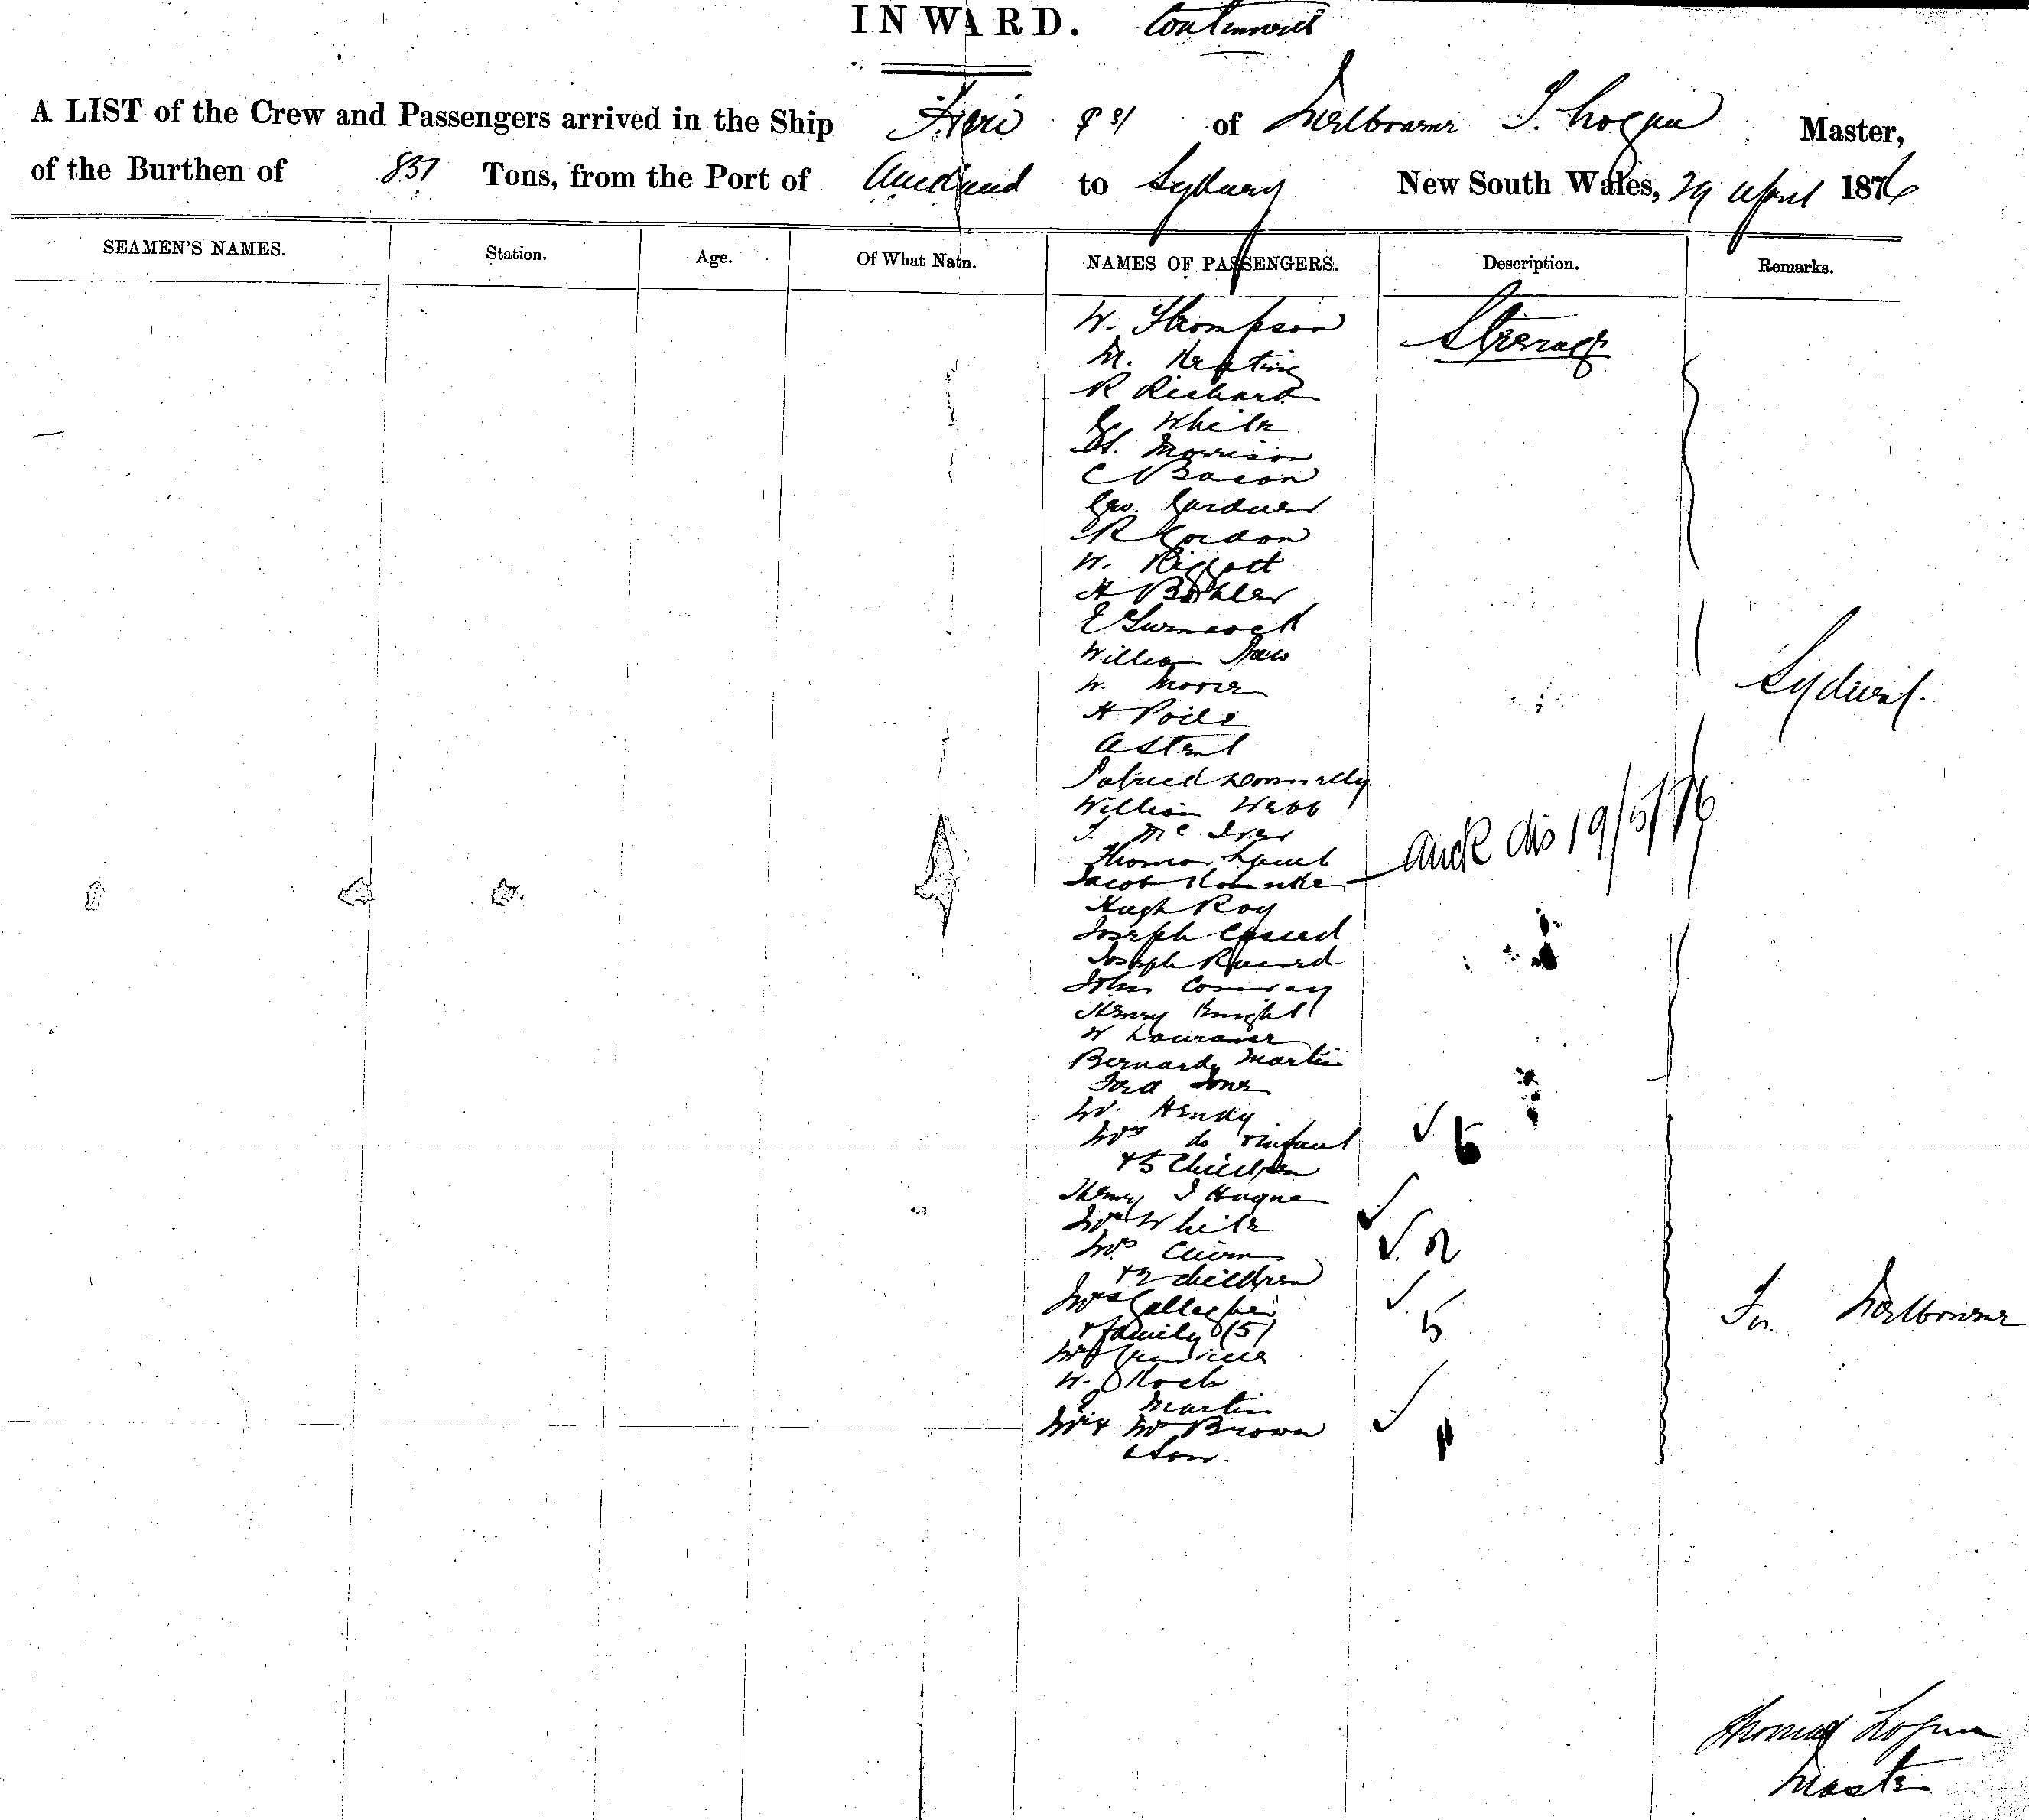 INWARD. Continued
A LIST of the Crew and Passengers arrived in the Ship Hero of Melbourne T. Logan Master,
of the Burthen of 837 Tons, from the Port of Auckland to Sydney New South Wales, 29 April 1876
SEAMEN'S NAMES. Station. Age. Of What Natn. NAMES OF PASSENGERS. Description. Remarks.
W. Thompson Steerage
M. Keating
R Richard
G White
H. Morrison
C Bacon
Geo. Gardner
R Gordon
W. Piggott
A Bohler
E Gurncock
William
W. Moore
H Poile
A Stent
Patrick Donnelly
William Webb
T. McIver
Thomas Lamb
Jacob Auck dis 19/5/76
Hugh Roy
Joseph
Joseph
John Conway
Henry Knight
W Lawrance
Bernard Martin
Fred Jones
Mr Hendy
Mrs do & infant 5
& 5 Children
Henry J Hayne
Mrs White
Mrs 2
& 2 children
Mrs Gallagher
& family (5) 5
Mrs
W. Koch
J Martin
Mr & Mrs Brown 1
& Son.
Sydney.
For Melbourne
Thomas Logan
Master